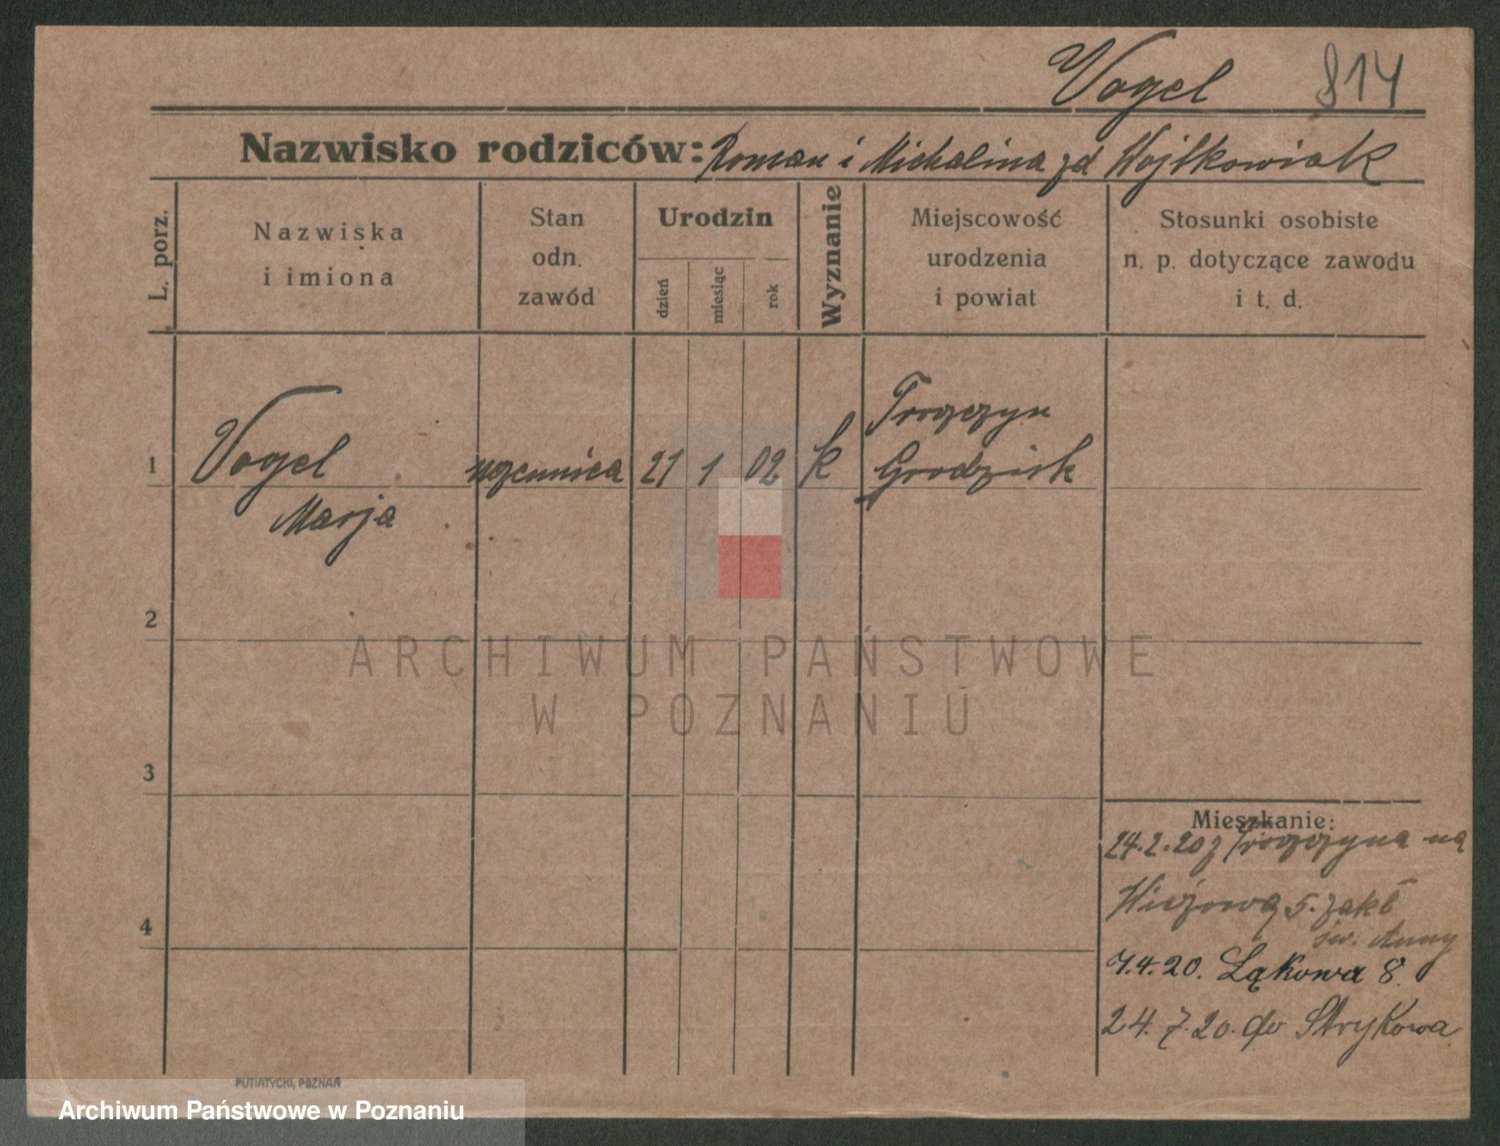 Vogel 814
Nazwisko rodziców: Roman i Michalina zd Wojtkowiak
L. porz.
Nazwiska
i imiona
Stan
odn.
zawód
Urodzin
dzień
miesiąc
rok
Wyznanie
Miejscowość
urodzenia
i powiat
Stosunki osobiste
n. p. dotyczące zawodu
i t. d.
1
Vogel
Marja
uczennica
21 1 02 k
Troszczyn
Grodzisk
2
ARCHIWUM PAŃSTWOWE
W POZNANIU
3
Mieszkanie:
24.2.20 z na
5. zakł
św. Anny
4
7.4.20. Łąkowa 8.
24.7.20. do Strykowa
PUTIATYCKI, POZNAŃ
Archiwum Państwowe w Poznaniu